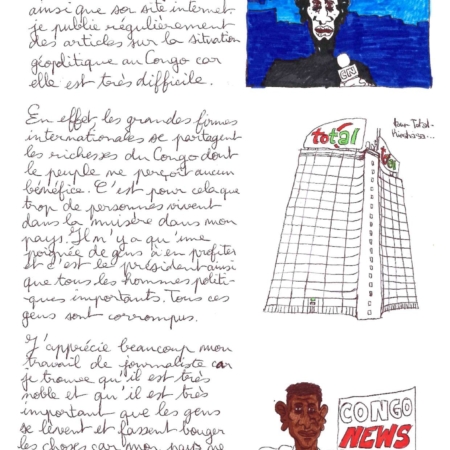 ainsi que son site internet
je publie régulièrement
des articles sur la situation
géopolitique au Congo car
elle est très difficile.
En effet les grandes firmes
internationales se partagent
les richesses du Congo dont
le peuple ne perçoit aucun
bénéfice. C'est pour cela que
trop de personnes vivent
dans la misère dans mon
pays. Il n'y a qu'une
poignée de gens à en profiter
et c'est le président ainsi
que tous les hommes politi-
ques importants. Tous ces
gens sont corrompus.
J'apprécie beaucoup mon
travail de journaliste car
je trouve qu'il est très
noble et qu'il est très
important que les gens
se lèvent et fassent bouger
les choses car mon pays ne
CN
tour Total-
Kinshasa...
total
total
CONGO
NEWS